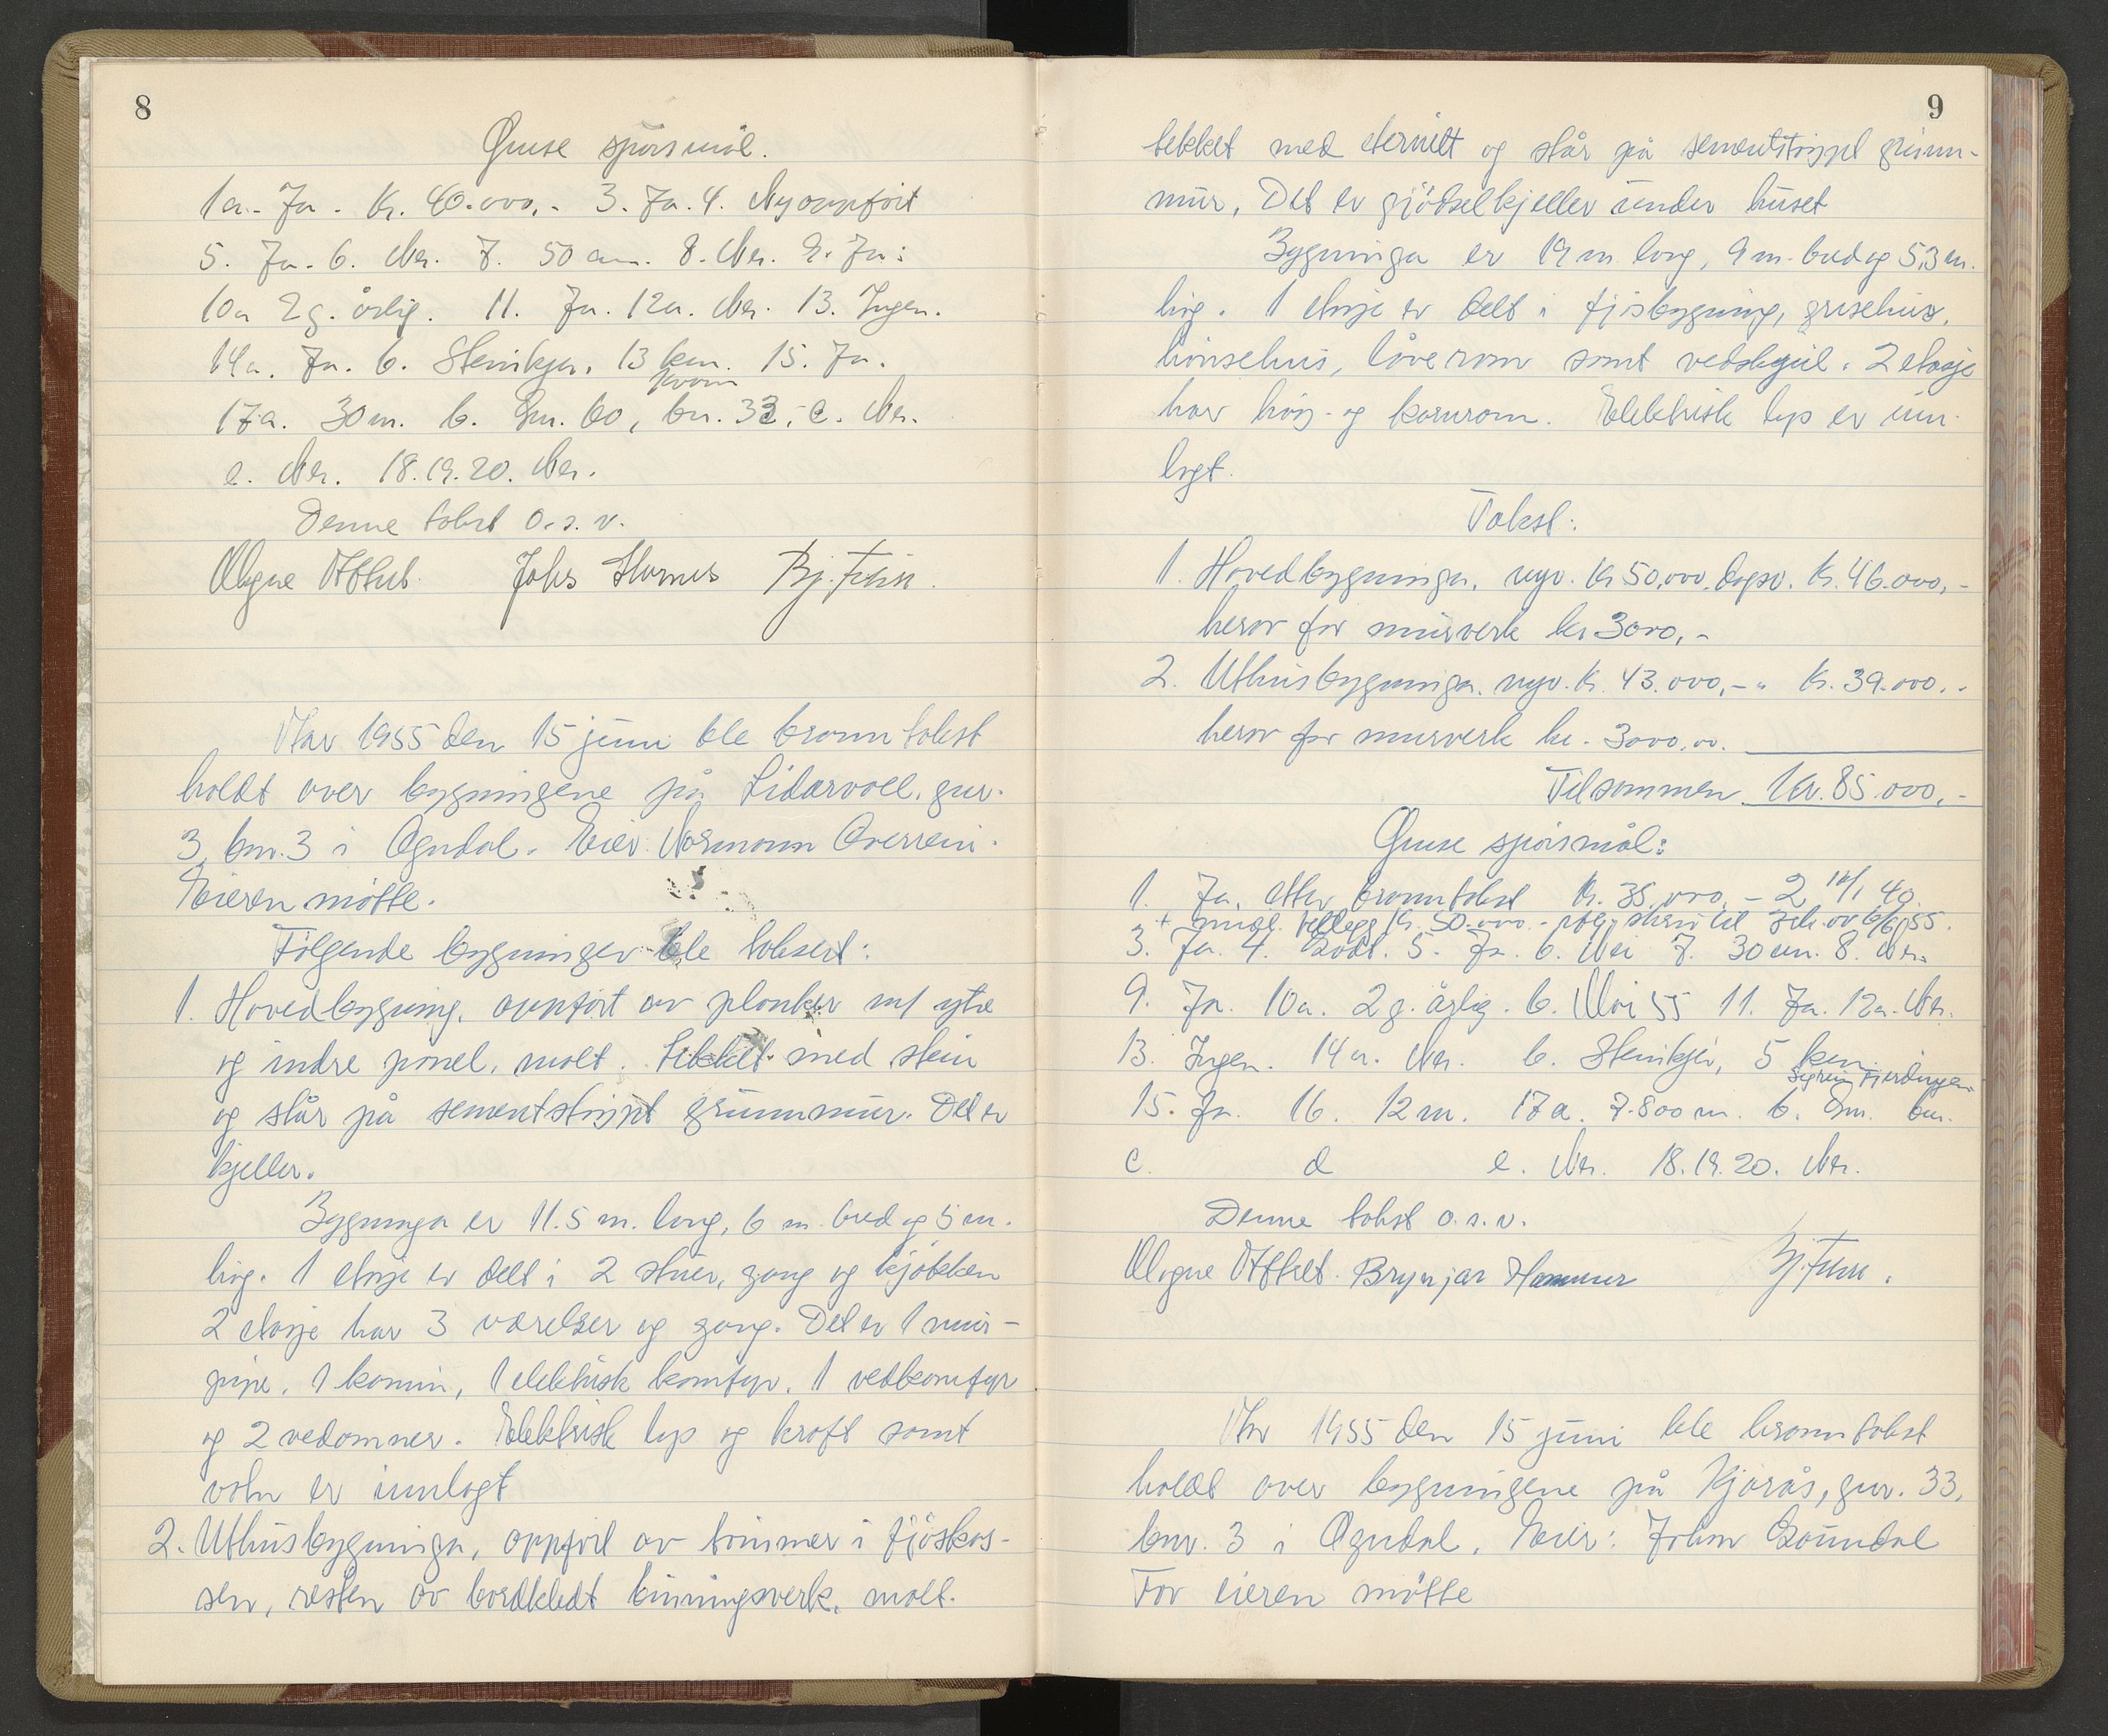 8
Qmse spörsmål.
1a. Ja. Kr. 40.000,- 3. Ja. 4. Nyoppfört
5. Ja. 6. Nei. 7. 50 cm. 8. Nei. 9. Ja.
10a 2 g. årlig. 11. Ja. 12a. Nei. 13. Ingen.
14a. Ja. b. Steinkjer, 13 km. 15. Ja.
Kvam
17a. 30 m. b. Gnr. 60, bnr. 33, c. Nei.
e. Nei. 18.19.20. Nei.
Denne takst o.s.v.
Magne Bj.
År 1955 den 15 juni ble branntakst
holdt over bygningene på Lidarvoll, gnr.
3, bnr. 3 i Ogndal. Eier Normann Overrein.
Eieren mötte.
Fölgende bygninger ble taksert:
1. Hovedbygning, oppfört av planker m/ ytre
og indre panel, malt. Tekket med stein
og står på sementstöppt grunnmur. Det er
kjeller.
Bygninga er 11.5 m. lang, 6 m. bred og 5 m.
hög. 1 etasje er delt i 2 stuer, gang og kjökken
2 etasje har 3 værelser og gang. Det er 1 mur-
pipe, 1 kamin, 1 elektrisk komfyr, 1 vedkomfyr
og 2 vedomner. Elektrisk lys og kraft samt
vatn er innlagt
2. Uthusbygninga, oppfört av tömmer i fjöskas-
sen, resten av bordkledt binningsverk, malt.
9
tekket med eternitt og står på sementstöppt grunn-
mur, Det er gjödselkjeller under huset
Bygninga er 19 m lang, 9 m. bred og 5,3 m.
hög. 1 etasje er delt i fjösbygning, grisehus,
hönsehus, låverom samt vedskjul. 2 etasje
har höy- og kornrom. Elektrisk lys er inn-
lagt.
Takst:
1. Hovedbygninga, nyv. Kr 50.000. dagsv. Kr. 46.000,-
herav for murverk kr 3000,-
2. Uthusbygninga, nyv. Kr. 43.000,- " Kr. 39.000.-
herav for murverk kr. 3000.00.
Tilsammen Kr. 85.000,-
Qmse spörsmål:
1. Ja, etter branntakst Kr. 35.000,- 2 40.
+ tillegg Kr. 50.000.- skriv til av 6/6 55.
3. Ja. 4. Godt. 5. Ja. 6. Nei 7. 30 cm. 8. Nei.
9. Ja. 10a. 2 g. årlig. b. Mai 55 11. Ja. 12a. Nei.
13. Ingen. 14a. Nei. b. Steinkjer, 5 km.
15. Ja. 16. 12 m. 17a. 7-800 m. b. Gnr. bnr.
c. d e. Nei. 18.19.20. Nei.
Denne takst o.s.v.
Magne Brynjar Hammer Bj.
År 1955 den 15 juni ble branntakst
holdt over bygningene på Kjørås, gnr. 33,
bnr. 3 i Ogndal. Eier: Johan Gaundal
For eieren mötte